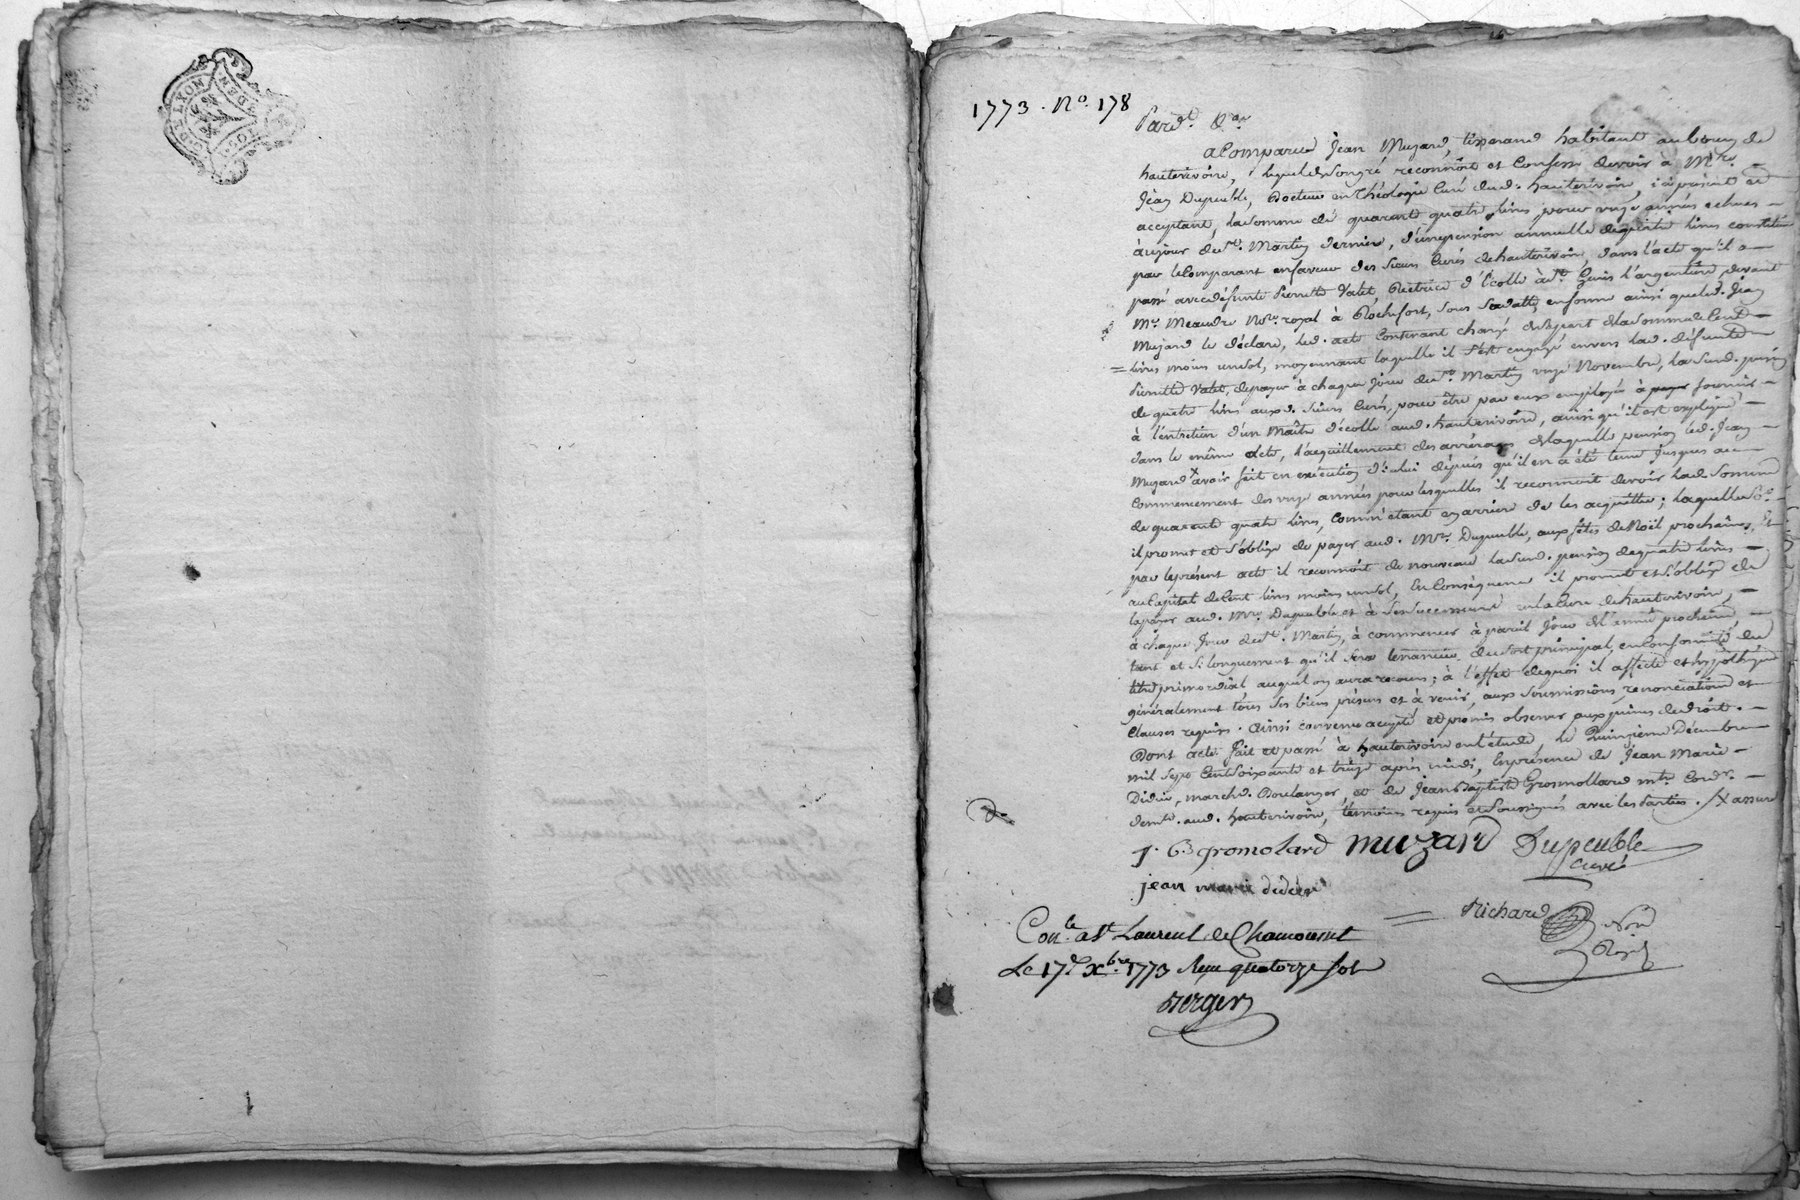 G. DE LYON
DEN
1773. N.º 178
Pard.t &.a
a Comparu Jean Muzard, tisserand habitant au bourg de
hauterivoire, lequel de son gré reconnoit et Confesse devoir à M.re
Jean Dupeuble, Docteur en Théologie Curé dud. hauterivoire, ici présent et
acceptant, la somme de quarante quatre livres, pour onze années echues
au jour de S.t Martin dernier, d'une pension annuelle de quatre livres constituée
par le Comparant en faveur des Sieurs Curés de hauterivoire, dans l'acte qu'il a
passé avec défunte Pierrette Valet, Rectrice d'Ecolle à S.t Genis l'argentiere, devant
M.e Meaudre No.re royal à Rochefort, sous sa datte, en forme ainsi que led. Jean
Muzard le déclare, led. acte Contenant charge de la somme de Cent
livres moins un sol, moyennant laquelle il s'est engagé envers lad. défunte
Pierrette Valet, de payer à chaque jour de S.t Martin onze Novembre, la susd. pension
de quatre livres auxd. Sieurs Curés, pour être par eux employée à fournir
à l'entretien d'un Maitre d'écolle aud. hauterivoire, ainsi qu'il est expliqué
dans le même acte, l'acquittement des arrérages de laquelle pension led. Jean
Muzard avoir fait en exécution d'icelui depuis qu'il en a été tenu jusques au
Commencement des onze années pour lesquelles il reconnoit devoir lad. somme
de quarante quatre livres, comm'etant en arriere de les acquitter; laquelle So.e
il promet et s'oblige de payer aud. M.re Dupeuble, aux fêtes de Noël prochaines, Et
par le présent acte il reconnoit de nouveau la susd. pension de quatre livres
au Capital de Cent livres moins un sol, En Conséquence il promet et s'oblige de
la payer aud. M.re Dupeuble et à ses successeurs en la Cure de hauterivoire,
à chaque Jour de S.t Martin, à commencer à pareil Jour de l'année prochaine,
tant et si longuement qu'il sera tenancier du sort principal, en Conformité du
titre primordial auquel on aura recours; à l'effet de quoi il affecte et hypothéque
généralement tous ses biens présens et à venir, aux soumissions renonciations et
Clauses requises. Ainsi convenu accepté et promis observer aux peines de droit.
Dont acte. Fait et passé à hauterivoire en l'étude le Quinzieme Décembre
mil Sept Cent Soixante et treize après midi, En présence de Jean Marie
Didier, march.d Boulanger, et de Jean Baptiste Grosmollard m.tre Cord.r
dem.t aud. hauterivoire, témoins requis et Soussignés avec les parties. /X assure
J. B. gromolard muzard Dupeuble
Curé
jean marie didier
Richard
No.re
Royal
Con.lé a S.t Laurent de Chamousset
Le 17.e Xbre 1773 Reçu quatorze sols
Berger